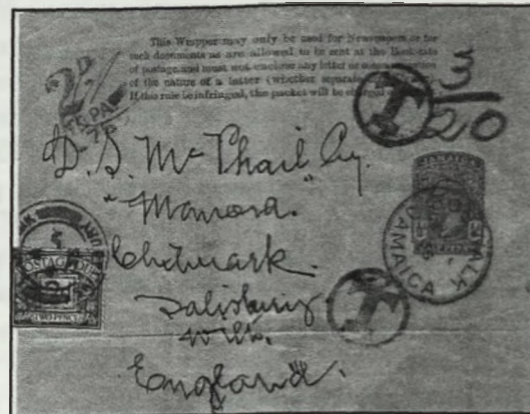 This Wrapper may only be used for Newspapers or for
such documents as are allowed to be sent at the Book-rate
of postage, and must not enclose any letter or communication
of the nature of a letter (whether separate
If this rule be infringed, this packet will be charged
2D
T 3
20
D. S. McPhail Esq.
"Manora."
Chilmark.
POSTAGE DUE
TWO PENCE
JAMAICA
JAMAICA
Salisbury
T
Wilts.
England.